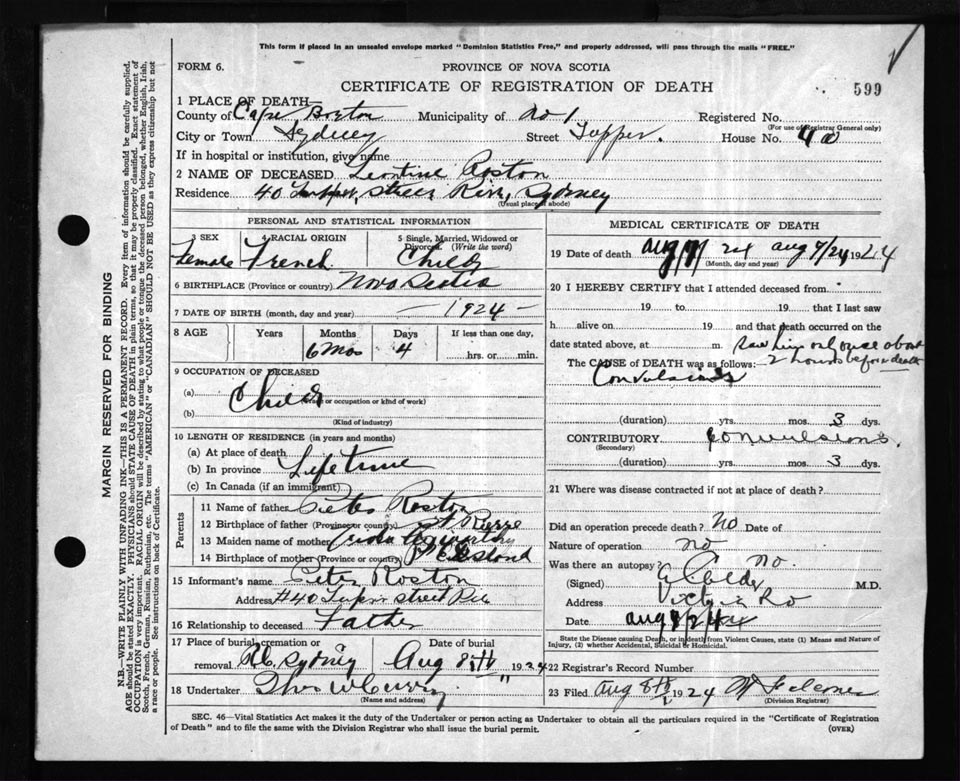 This form if placed in an unsealed envelope marked "Dominion Statistics Free," and properly addressed, will pass through the mails "FREE."
FORM 6.
PROVINCE OF NOVA SCOTIA
CERTIFICATE OF REGISTRATION OF DEATH
599
1 PLACE OF DEATH
County of Cape Breton Municipality of No 1 Registered No.
(For use of Registrar General only)
City or Town Sydney Street Tupper. House No. 40
If in hospital or institution, give name
2 NAME OF DECEASED Leontine Roston
Residence 40 Tupper Street Sydney
(Usual place of abode)
PERSONAL AND STATISTICAL INFORMATION
3 SEX Female
4 RACIAL ORIGIN French
5 Single, Married, Widowed or Divorced (Write the word) Child
6 BIRTHPLACE (Province or country) Nova Scotia
7 DATE OF BIRTH (month, day and year) — 1924 —
8 AGE Years Months Days If less than one day,
6 Mos 4 hrs. or min.
9 OCCUPATION OF DECEASED
(a) Child
(Trade or occupation or kind of work)
(b)
(Kind of industry)
10 LENGTH OF RESIDENCE (in years and months)
(a) At place of death
(b) In province Lifetime
(c) In Canada (if an immigrant)
Parents
11 Name of father Peter Roston
12 Birthplace of father (Province or country) St. Pierre
13 Maiden name of mother
14 Birthplace of mother (Province or country) P E Island
15 Informant's name Peter Roston
Address #40 Street
16 Relationship to deceased Father
17 Place of burial, cremation or removal Sydney
Date of burial Aug 8th 1924
18 Undertaker Thos W Curry
(Name and address)
MEDICAL CERTIFICATE OF DEATH
19 Date of death aug 7/24 aug 7/24 1924
(Month, day and year)
20 I HEREBY CERTIFY that I attended deceased from
19 to 19 that I last saw
h alive on 19 and that death occurred on
date stated above, at m. Saw him only once about
2 hours before death
The CAUSE of DEATH was as follows:
Convulsions
(duration) yrs. mos. 3 dys.
CONTRIBUTORY convulsions.
(Secondary)
(duration) yrs. mos. 3 dys.
21 Where was disease contracted if not at place of death?
Did an operation precede death? No Date of
Nature of operation no
Was there an autopsy? no.
(Signed) M.D.
Address
Date
State the Disease causing Death, or in death from Violent Causes, state (1) Means and Nature of
Injury, (2) whether Accidental, Suicidal or Homicidal.
22 Registrar's Record Number
23 Filed Aug 8th 1924
(Division Registrar)
SEC. 46—Vital Statistics Act makes it the duty of the Undertaker or person acting as Undertaker to obtain all the particulars required in the "Certificate of Registration
of Death" and to file the same with the Division Registrar who shall issue the burial permit.
(OVER)
MARGIN RESERVED FOR BINDING
N.B.—WRITE PLAINLY WITH UNFADING INK—THIS IS A PERMANENT RECORD. Every item of information should be carefully supplied.
AGE should be stated EXACTLY. PHYSICIANS should STATE CAUSE OF DEATH in plain terms, so that it may be properly classified. Exact statement of
OCCUPATION is very important. RACIAL ORIGIN will be described by stating to what people or tongue the deceased person belonged, whether English, Irish,
Scotch, French, German, Russian, Ruthenian, etc. The terms "AMERICAN" or "CANADIAN" SHOULD NOT BE USED as they express citizenship but not
a race or people. See instructions on back of Certificate.